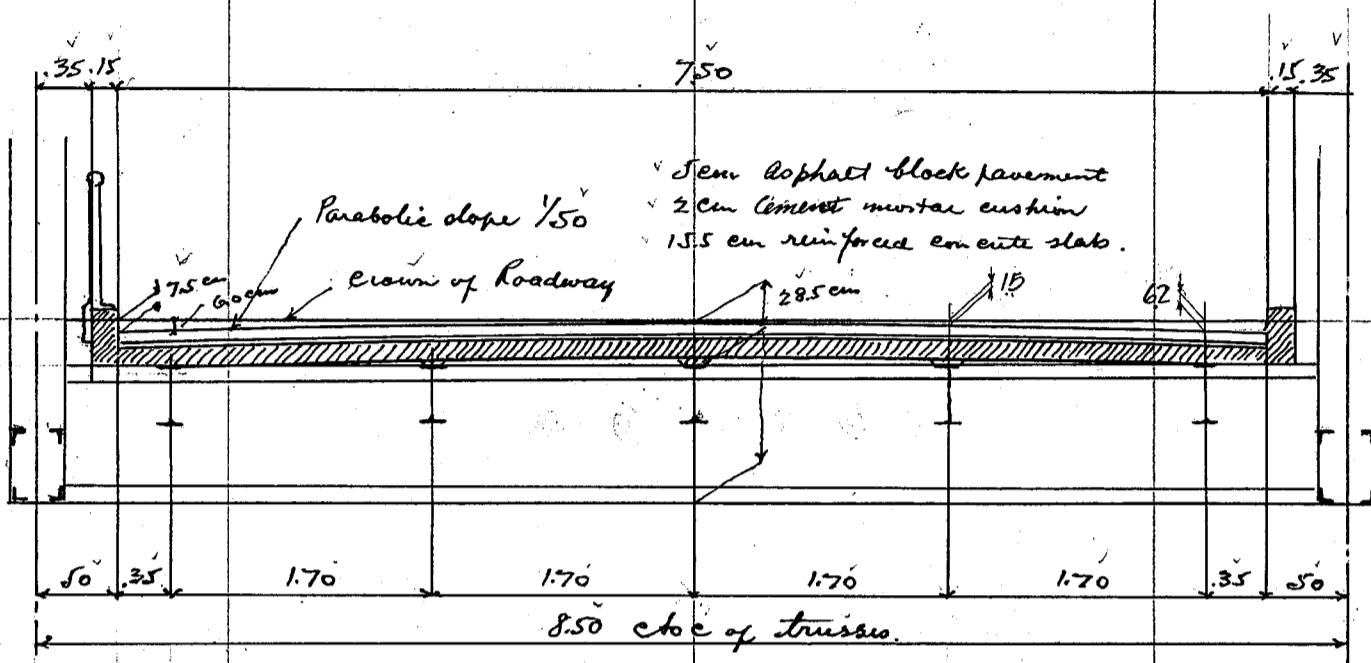 .35 .15 7.50 .15 .35
5 cm asphalt block pavement
2 cm Cement mortar cushion
15.5 cm reinforced concrete slab.
Parabolic slope 1/50
Crown of Roadway
7.5 cm
6.0 cm
28.5 cm
15
62
50 .35 1.70 1.70 1.70 1.70 .35 50
8.50 c to c of trusses.